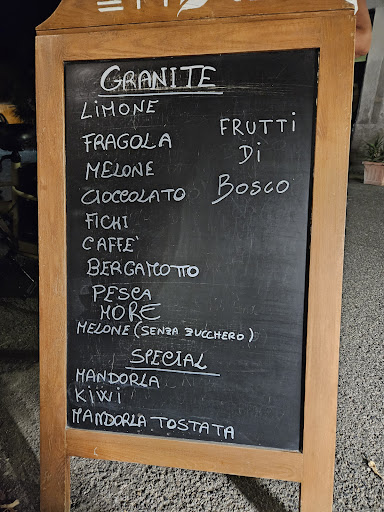 GRANITE
LIMONE
FRAGOLA
MELONE
CIOCCOLATO
FICHI
CAFFE'
BERGAMOTTO
PESCA
MORE
MELONE (SENZA ZUCCHERO)
FRUTTI
DI
BOSCO
SPECIAL
MANDORLA
KIWI
MANDORLA TOSTATA